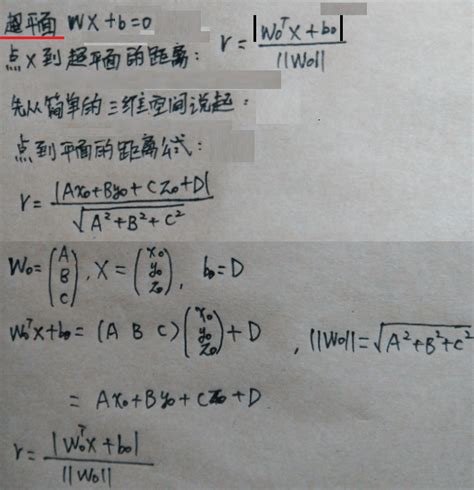 超平面 WX+b=0
点X到超平面的距离: r = |W₀ᵀX+b₀| / ||W₀||
先从简单的三维空间说起:
点到平面的距离公式:
r = |Ax₀+By₀+Cz₀+D| / √(A²+B²+C²)
W₀ = (A B C), X = (x₀ y₀ z₀), b₀=D
W₀ᵀX+b₀ = (A B C)(x₀ y₀ z₀)+D , ||W₀||=√(A²+B²+C²)
= Ax₀+By₀+Cz₀+D
r = |W₀ᵀX+b₀| / ||W₀||